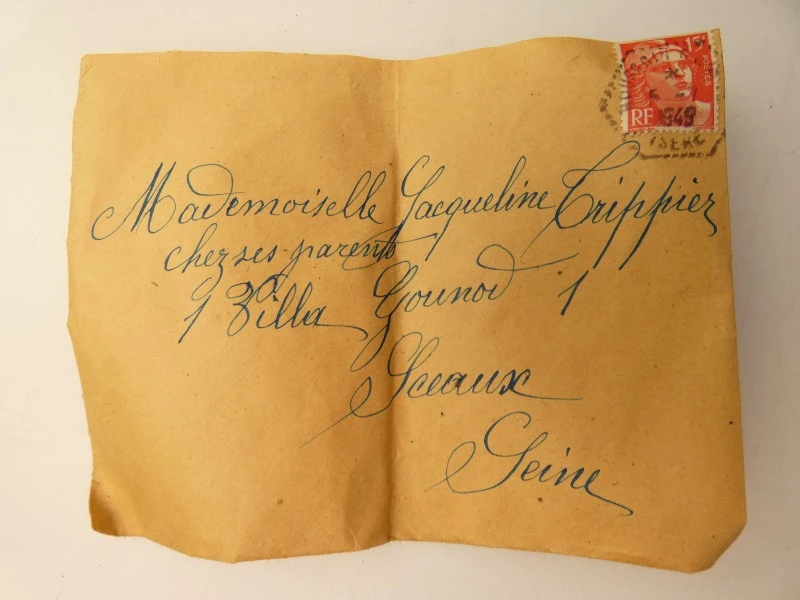 15F
POSTES
RF
1949
ISERE
Mademoiselle Jacqueline Trippier
chez ses parents
1 Villa Gounod 1
Sceaux
Seine